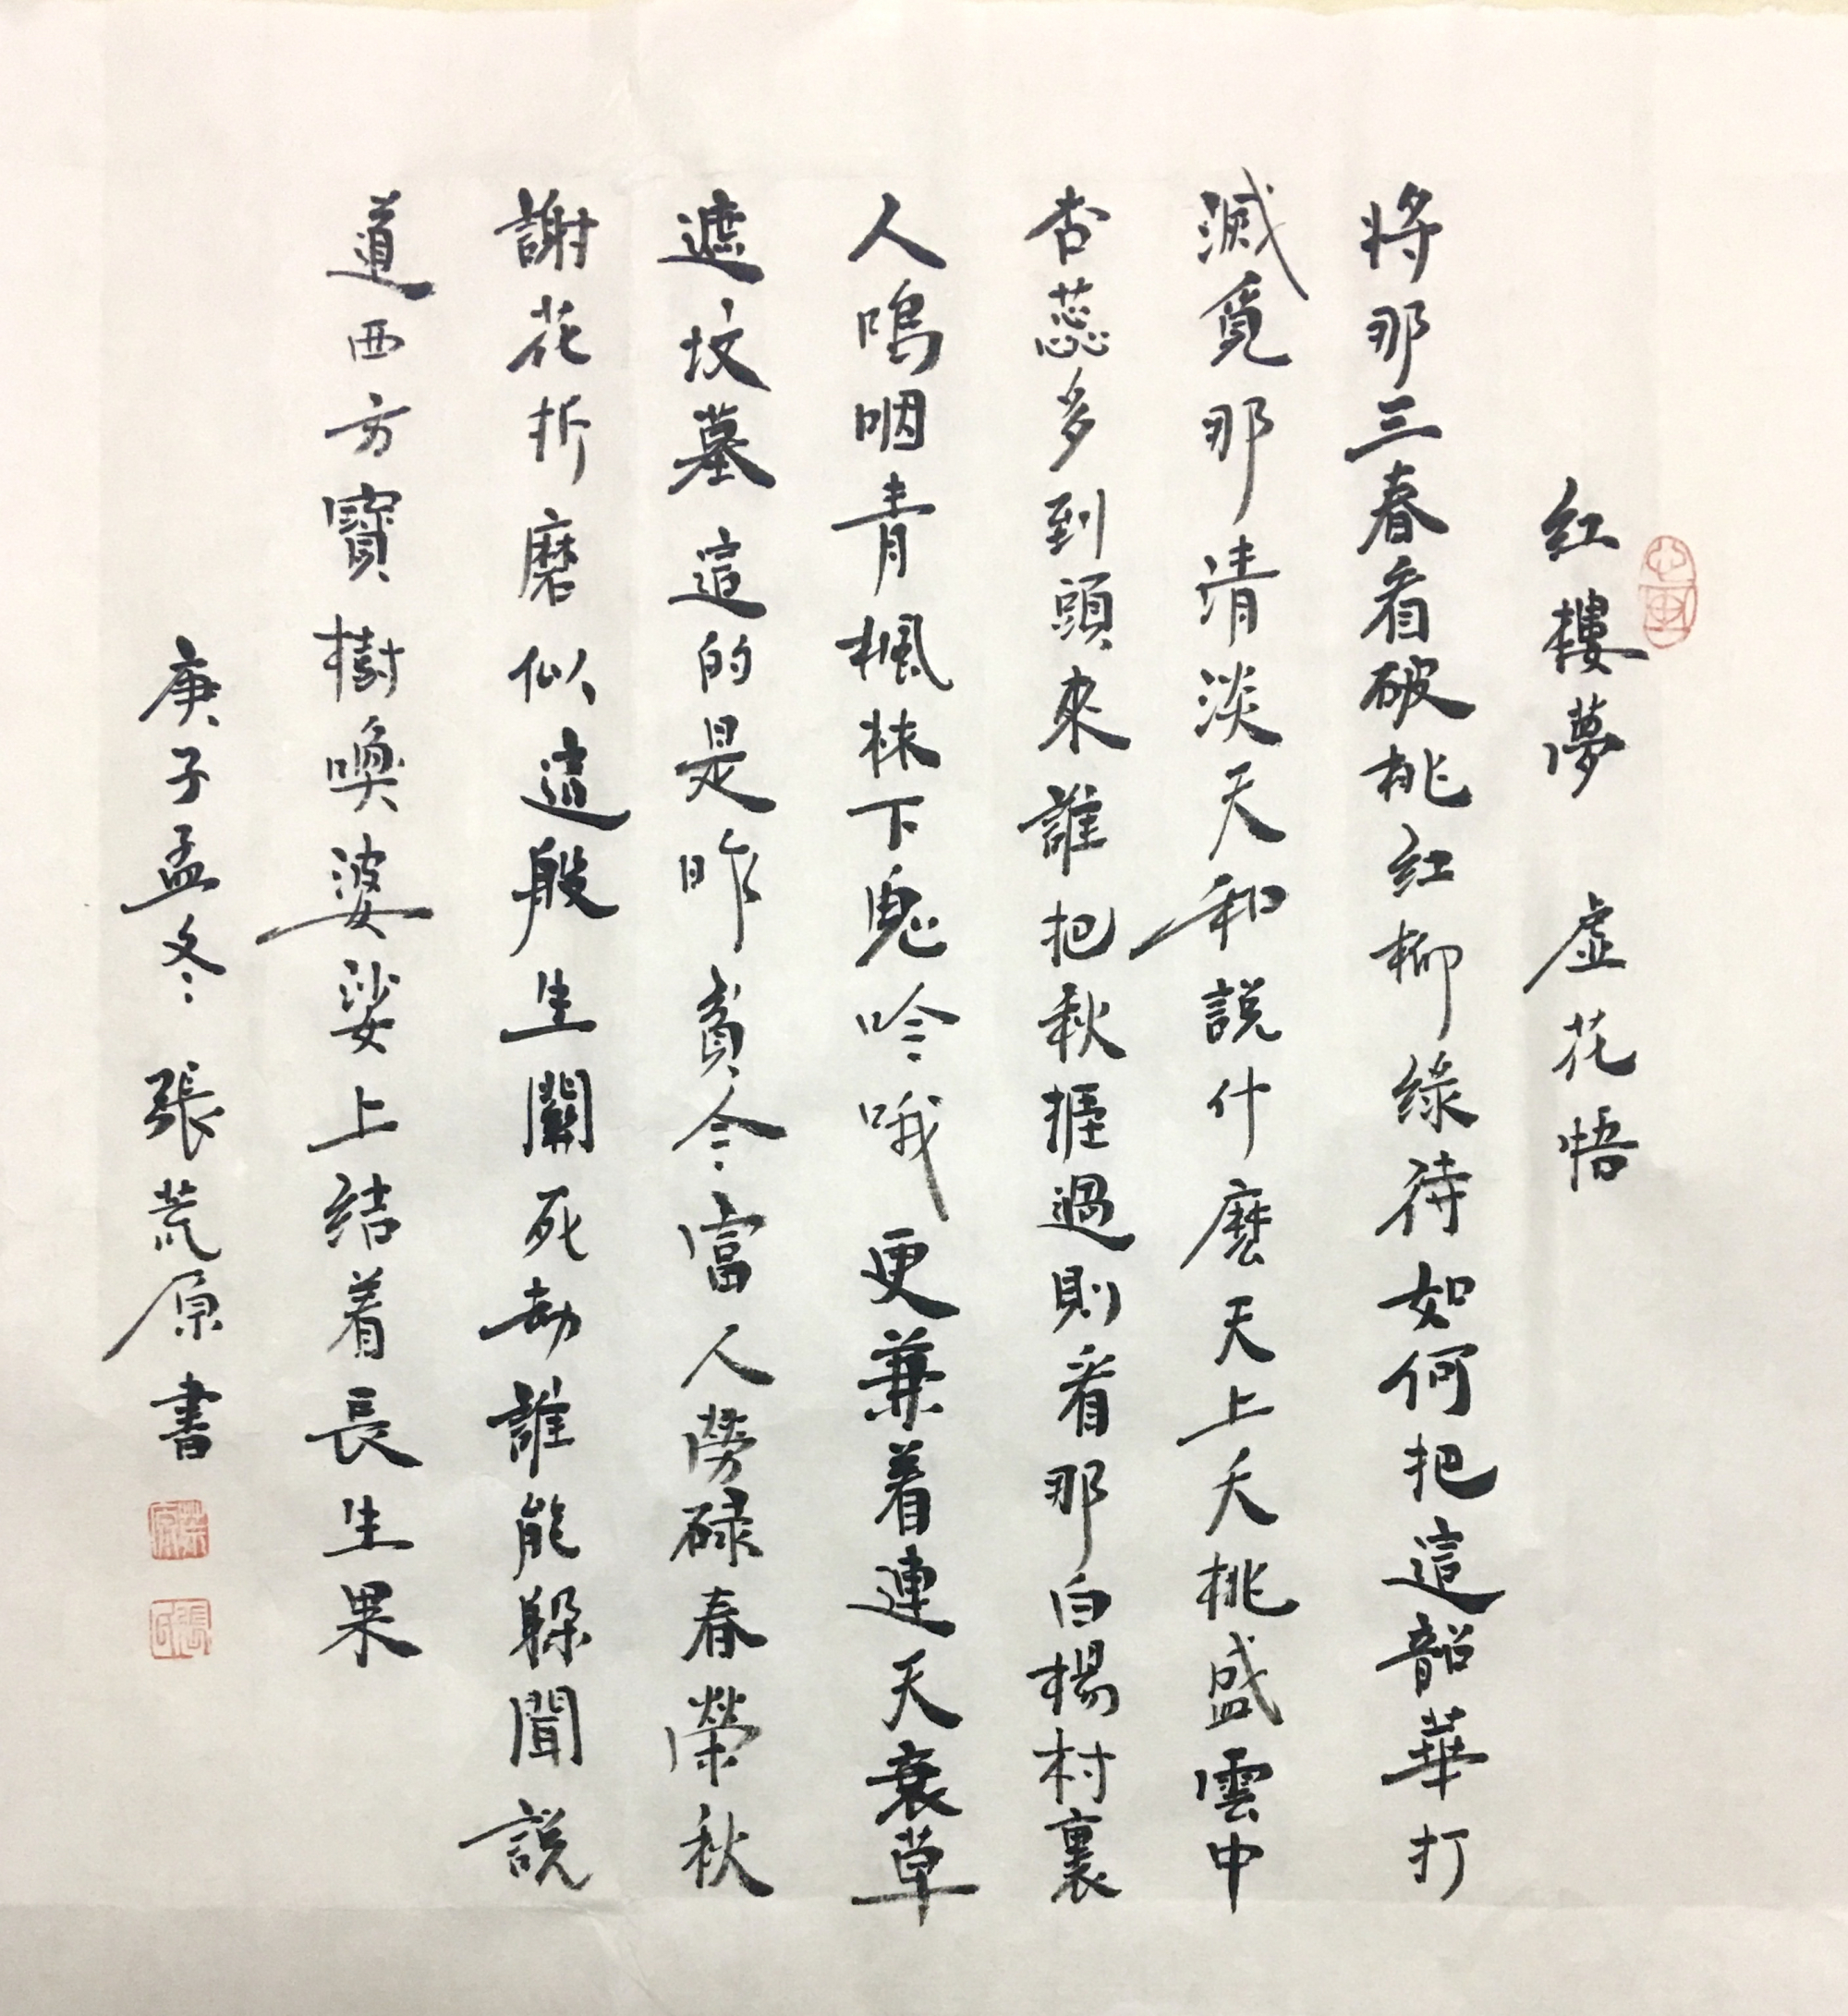 红樓夢 虚花悟
將那三春看破桃红柳綠待如何把這韶華打
滅覓那清淡天和説什麽天上夭桃盛雲中
杏蕊多到頭來誰把秋捱過則看那白楊村裏
人嗚咽青楓林下鬼吟哦更兼着連天衰草
遮坟墓這的是昨貧今富人勞碌春榮秋
謝花折磨似這般生關死劫誰能躲聞説
道西方寶樹喚婆娑上結着長生果
庚子孟冬 張荒原書
荒原
張氏